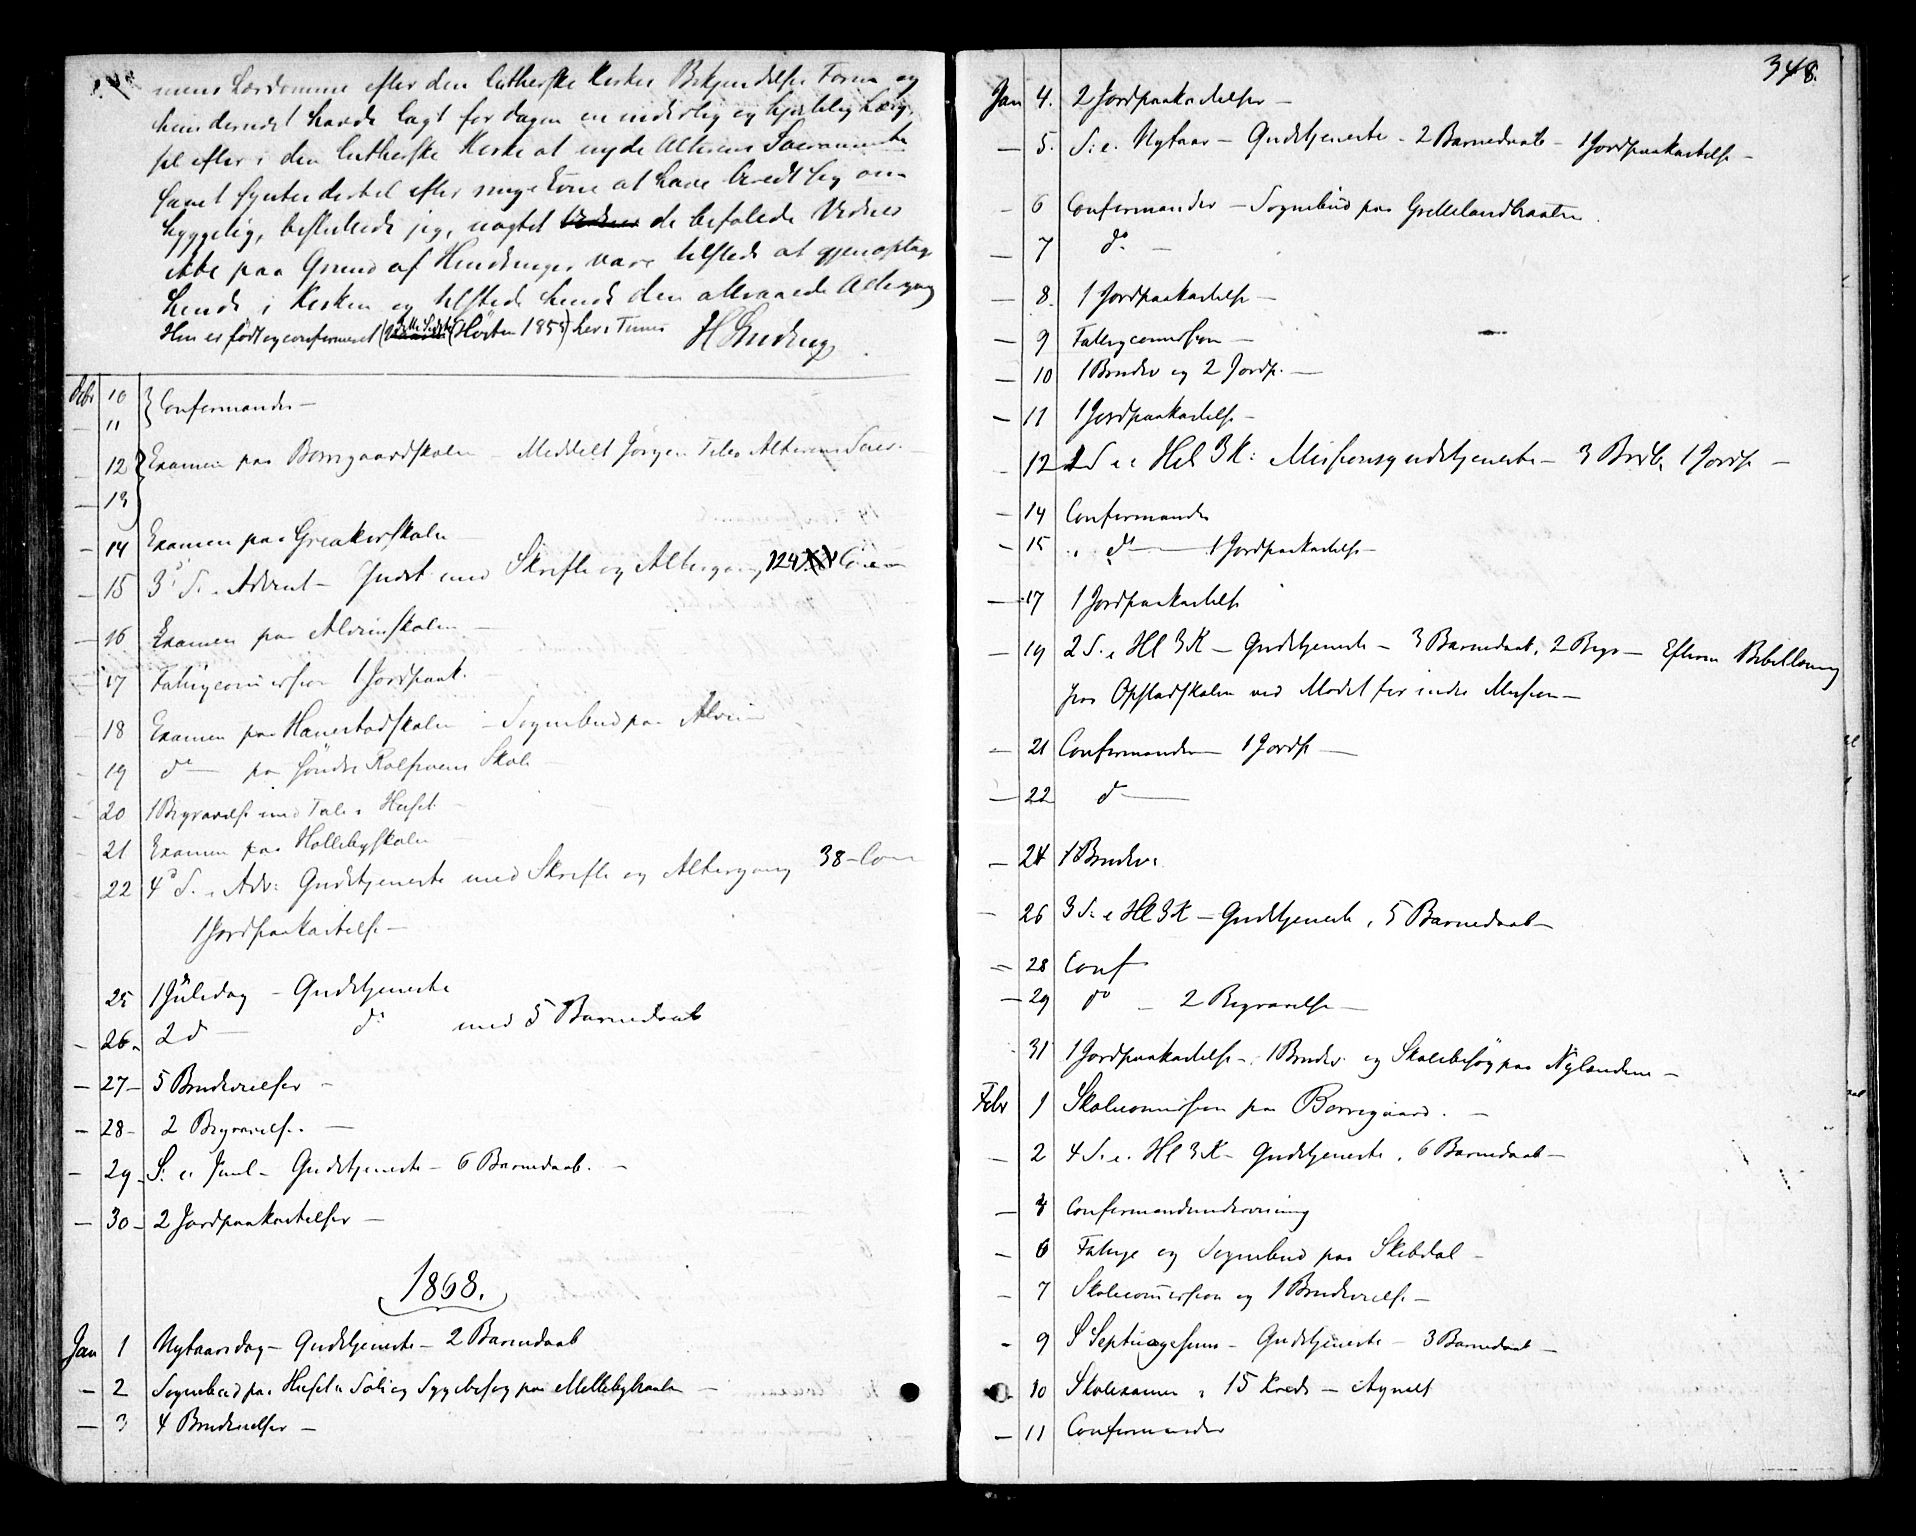 mens Lærdomme efter den lutherske Kirkes Bekjendelse Form og
hun derved havde lagt for dagen en inderlig og hjertelig Læng
sel efter i den lutherske Kirke at nyde Alterens Sacramente
samt syntes dertil efter mige Evne at have beredt sig om
hyggelig, besluttede jeg, uagtet de befalede Vidner
ikke paa Grund af Hindringer vare tilstede at gjenoptage
hende i Kirken og tilstede hende den attraaede Altergang
Hun er født og confirmeret (Høsten 1858) her i Tunø H
Dcbr 10 Confirmander –
11
12 Examen paa Borregaardskolen – Meddelt Jørgen Alterens Sacr. –
13
14 Examen paa Greakerskolen –
15 3' S. i Advent – Gudst med Skrifte og Altergang 124
16 Examen paa Alvimskolen –
17 Fattigcommission 1 Jordpaak. –
18 Examen paa Hanestadskolen – Sognebud paa Alvim
19 do – paa Søndre Rolfsøens Skole –
20 1 Begravelse med Tale i Huset –
21 Examen paa Hollebyskolen –
22 4' S. i Adv: Gudstjeneste med Skrifte og Altergang 38 – Com
1 Jordpaakastelse –
25 1 Juledag – Gudstjeneste
– 26 – 2 d – do med 5 Barnedaab
– 27 – 5 Brudevielser –
– 28 – 2 Begravelse. –
– 29 – S: e. Juul – Gudstjeneste – 6 Barnedaab. –
– 30 – 2 Jordpaakastelser –
1868.
Jan 1 Nytaarsdag – Gudstjeneste – 2 Barnedaab
– 2 Sognebud paa og Sygebesøg paa Mellebybraaten –
– 3 4 Brudevielser –
348.
Jan 4. 2 Jordpaakastelser –
– 5. S. e. Nytaar – Gudstjeneste – 2 Barnedaab – 1 Jordpaakastelse –
– 6 Confirmander – Sognebud paa Grellelandbraaten.
– 7 do –
– 8. 1 Jordpaakastelse –
– 9 Fattigcommission –
– 10 1 Brudev og 2 Jordp. –
– 11 1 Jordpaakastelse –
– 12 1 S e Hel 3 K: Missionsgudstjeneste – 3 1 Jordp –
– 14 Confirmander
– 15 do – 1 Jordpaakastelse –
– 17 1 Jordpaakastelse
– 19 2 S. e Hl 3 K – Gudstjeneste – 3 Barnedaab, 2 Begr – Efterm Bibellæsning
paa Opstadskolen ved Mødet for indre Mission –
– 21 Confirmander – 1 Jordp –
– 22 d –
– 24 1 Brudev:
– 26 3 S. e Hl 3 K – Gudstjeneste, 5 Barnedaab –
– 28 Conf
– 29 do – 2 Begravelse –
31 1 Jordpaakastelse –. 1 Brudev. og Skolebesøg paa Nylandene –
Febr 1 Skolecommission paa Borregaard. –
– 2 4 S. e. Hl 3 K – Gudstjeneste, 6 Barnedaab –
– 4 Confirmandundervisning
– 6 Fattige og Sognebud paa Skibdal –
– 7 Skolecommission og 1 Brudevielse –
– 9 S Septuagesima – Gudstjeneste – 3 Barnedaab –
– 10 Skolexamen i 15 Kreds – Agnelt
– 11 Confirmander